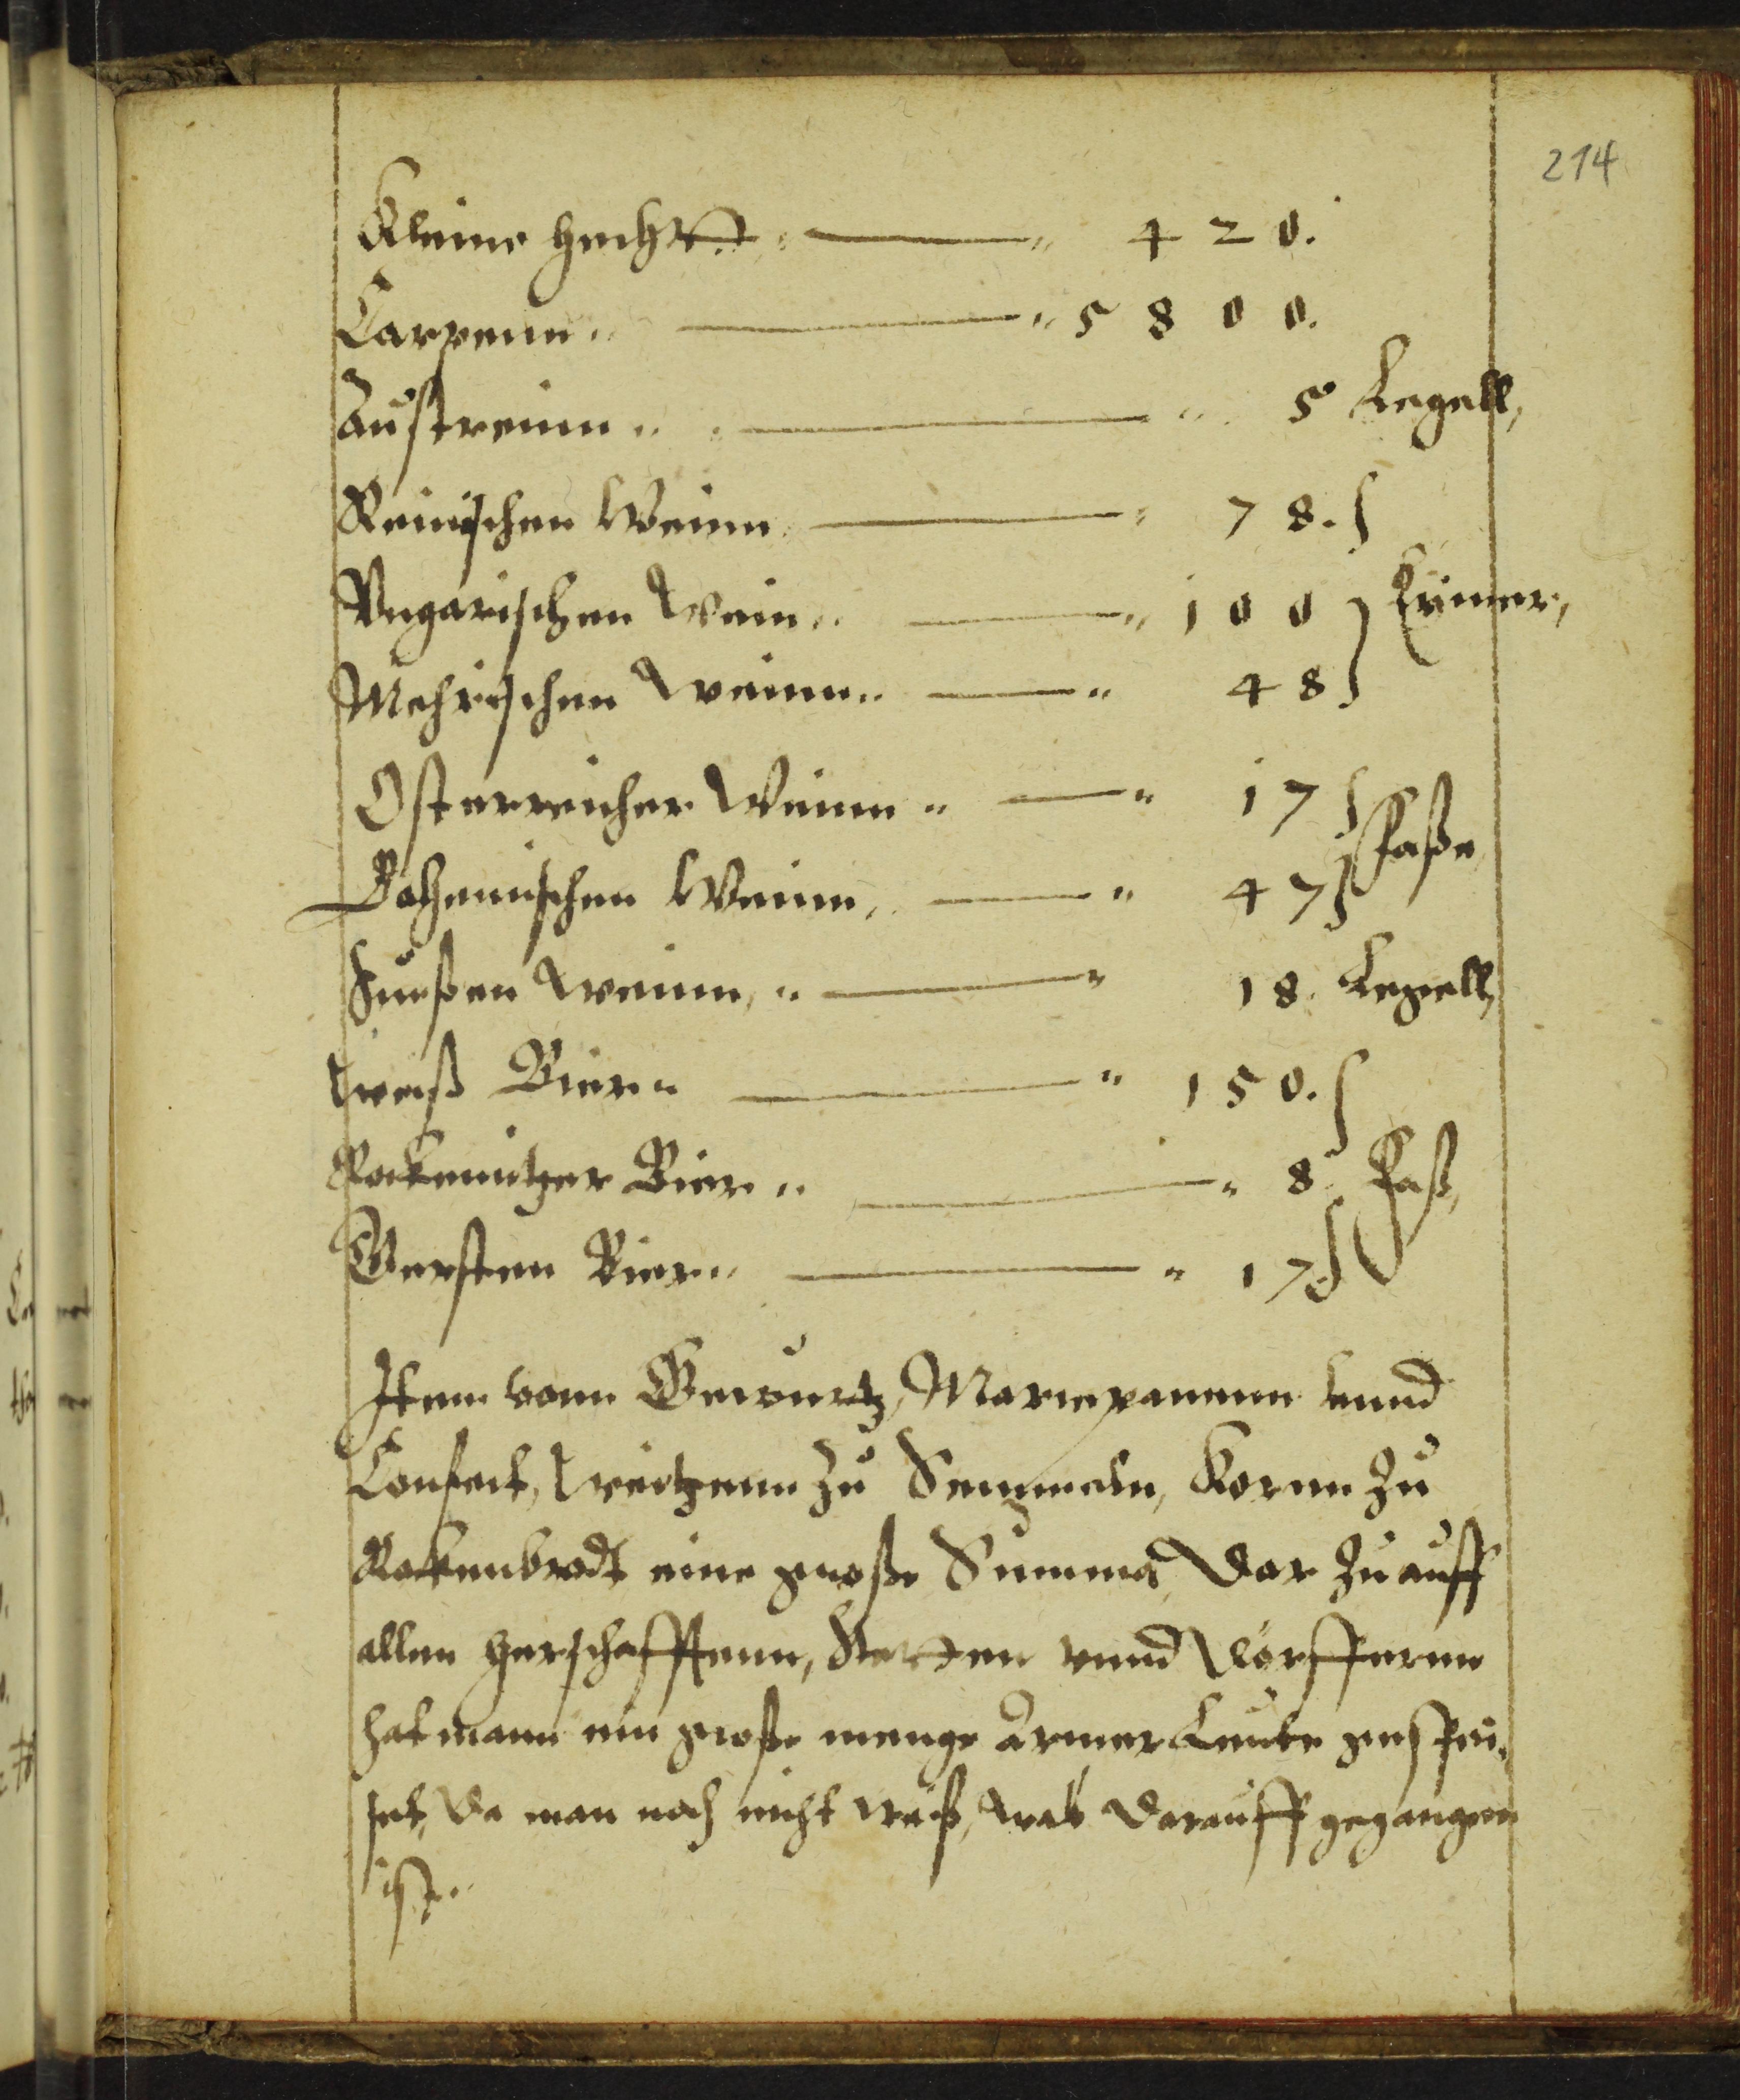 214
Kleine Hecht " — " 420.
Carpenn " — " 5800.
Austrenn " — " 5 Legell,
Reinischen Weinn — " 78.
Vngarischen Wein " — " 100 } Eimer,
Mehrischen Weinn " — " 48
Osterreicher Weinn " — " 17
} Faße
Bohemischen Weinn, — " 47
Sueßen Weinn, " — " 18. Legell,
Weiß Bier " — " 150.
Rackenitzer Bier " — " 8. } Faß,
Gersten Bier " — " 17
Item vonn Gewurtz, Marcepannenn vnnd
Confect, Weitzenn zu Semmeln, Kornn zu
Rockenbrodt eine große Summa, Dar zu auff
allen Herschafftenn, Stedten vnnd Dörffernn
hat mann ein große menge Armer Leute gespei-
set, Da man noch nicht weiß, was darauff gegangen
ist.